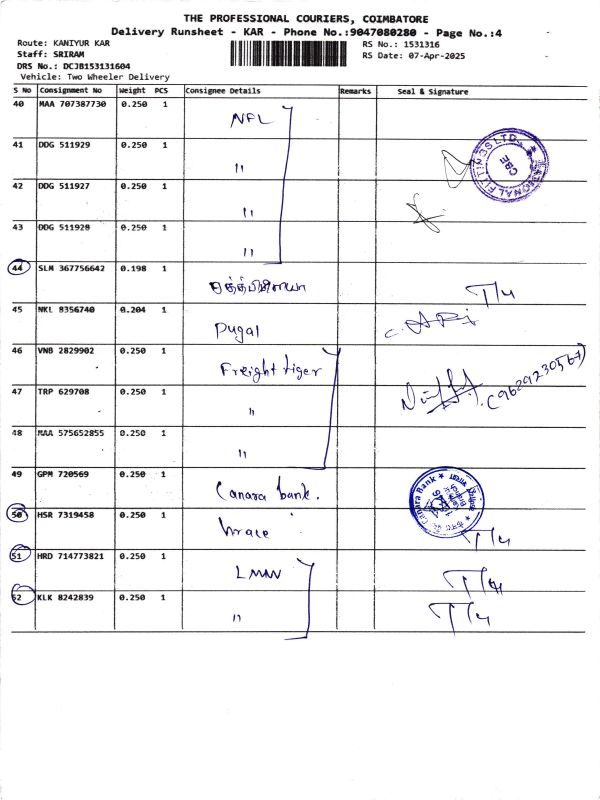 THE PROFESSIONAL COURIERS, COIMBATORE
Delivery Runsheet - KAR - Phone No.:9047080280 - Page No.:4
Route: KANIYUR KAR
RS No.: 1531316
Staff: SRIRAM
RS Date: 07-Apr-2025
DRS No.: DCJB153131604
Vehicle: Two Wheeler Delivery
S No Consignment No Weight PCS Consignee Details Remarks Seal & Signature
40 MAA 707387730 0.250 1 NFL
41 DDG 511929 0.250 1 "
42 DDG 511927 0.250 1 "
43 DDG 511928 0.250 1 "
NATIONAL FITTINGS LTD. CBE
44 SLM 367756642 0.198 1
45 NKL 8356740 0.204 1 Pugal
46 VNB 2829902 0.250 1 Freight tiger
47 TRP 629708 0.250 1 " (9629230567)
48 MAA 575652855 0.250 1 "
49 GPM 720569 0.250 1 Canara bank. Canara Bank
50 HSR 7319458 0.250 1
51 HRD 714773821 0.250 1 LMW
52 KLK 8242839 0.250 1 "